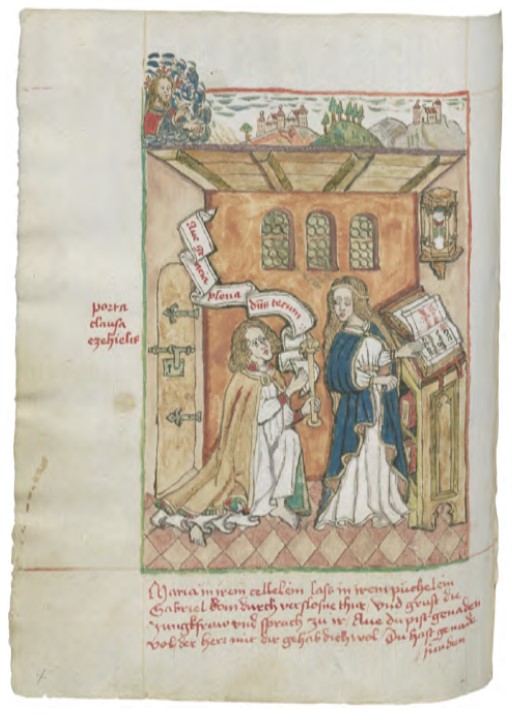 Aue gracia
plena dn̄s tecum
porta
clausa
ezehielis
Maria in irem cellelein lass in irem püchelein
Gabriel kom durch verslosne thür vnd grüst die
Jungkfraw vnd sprach zu ir Aue du pist genaden
vol der herr mit dir gehab dich wol Du hast genade
funden